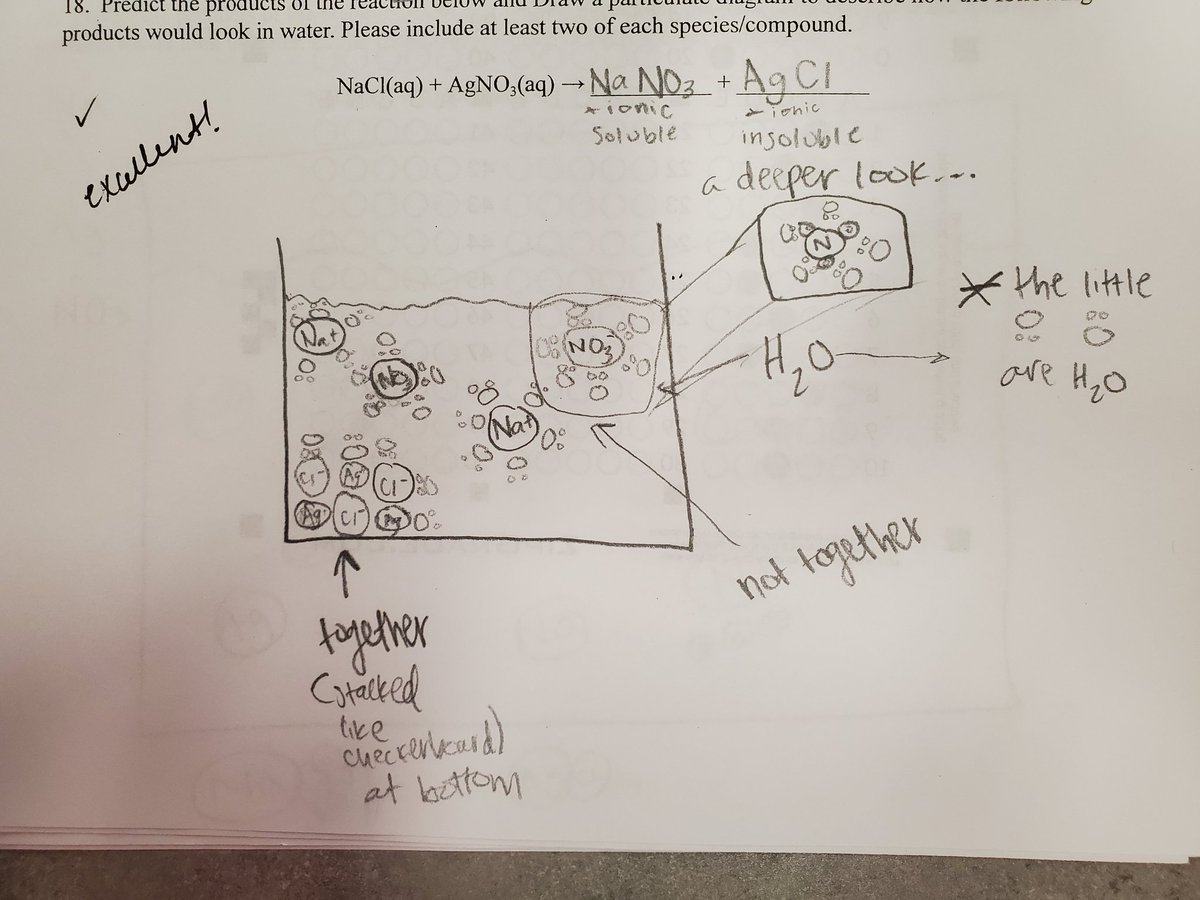 18. Predict the products of the reaction below and Draw a particulate diagram to describe how the following
products would look in water. Please include at least two of each species/compound.
NaCl(aq) + AgNO₃(aq) → NaNO₃ + AgCl
ionic ionic
Soluble insoluble
✓
excellent!
a deeper look....
N
Na+
NO₃
NO₃⁻
Na+
H₂O
* the little
are H₂O
Cl⁻ Ag⁺ Cl⁻
Ag⁺ Cl⁻ Ag⁺
not together
together
(stacked
like
checkerboard)
at bottom